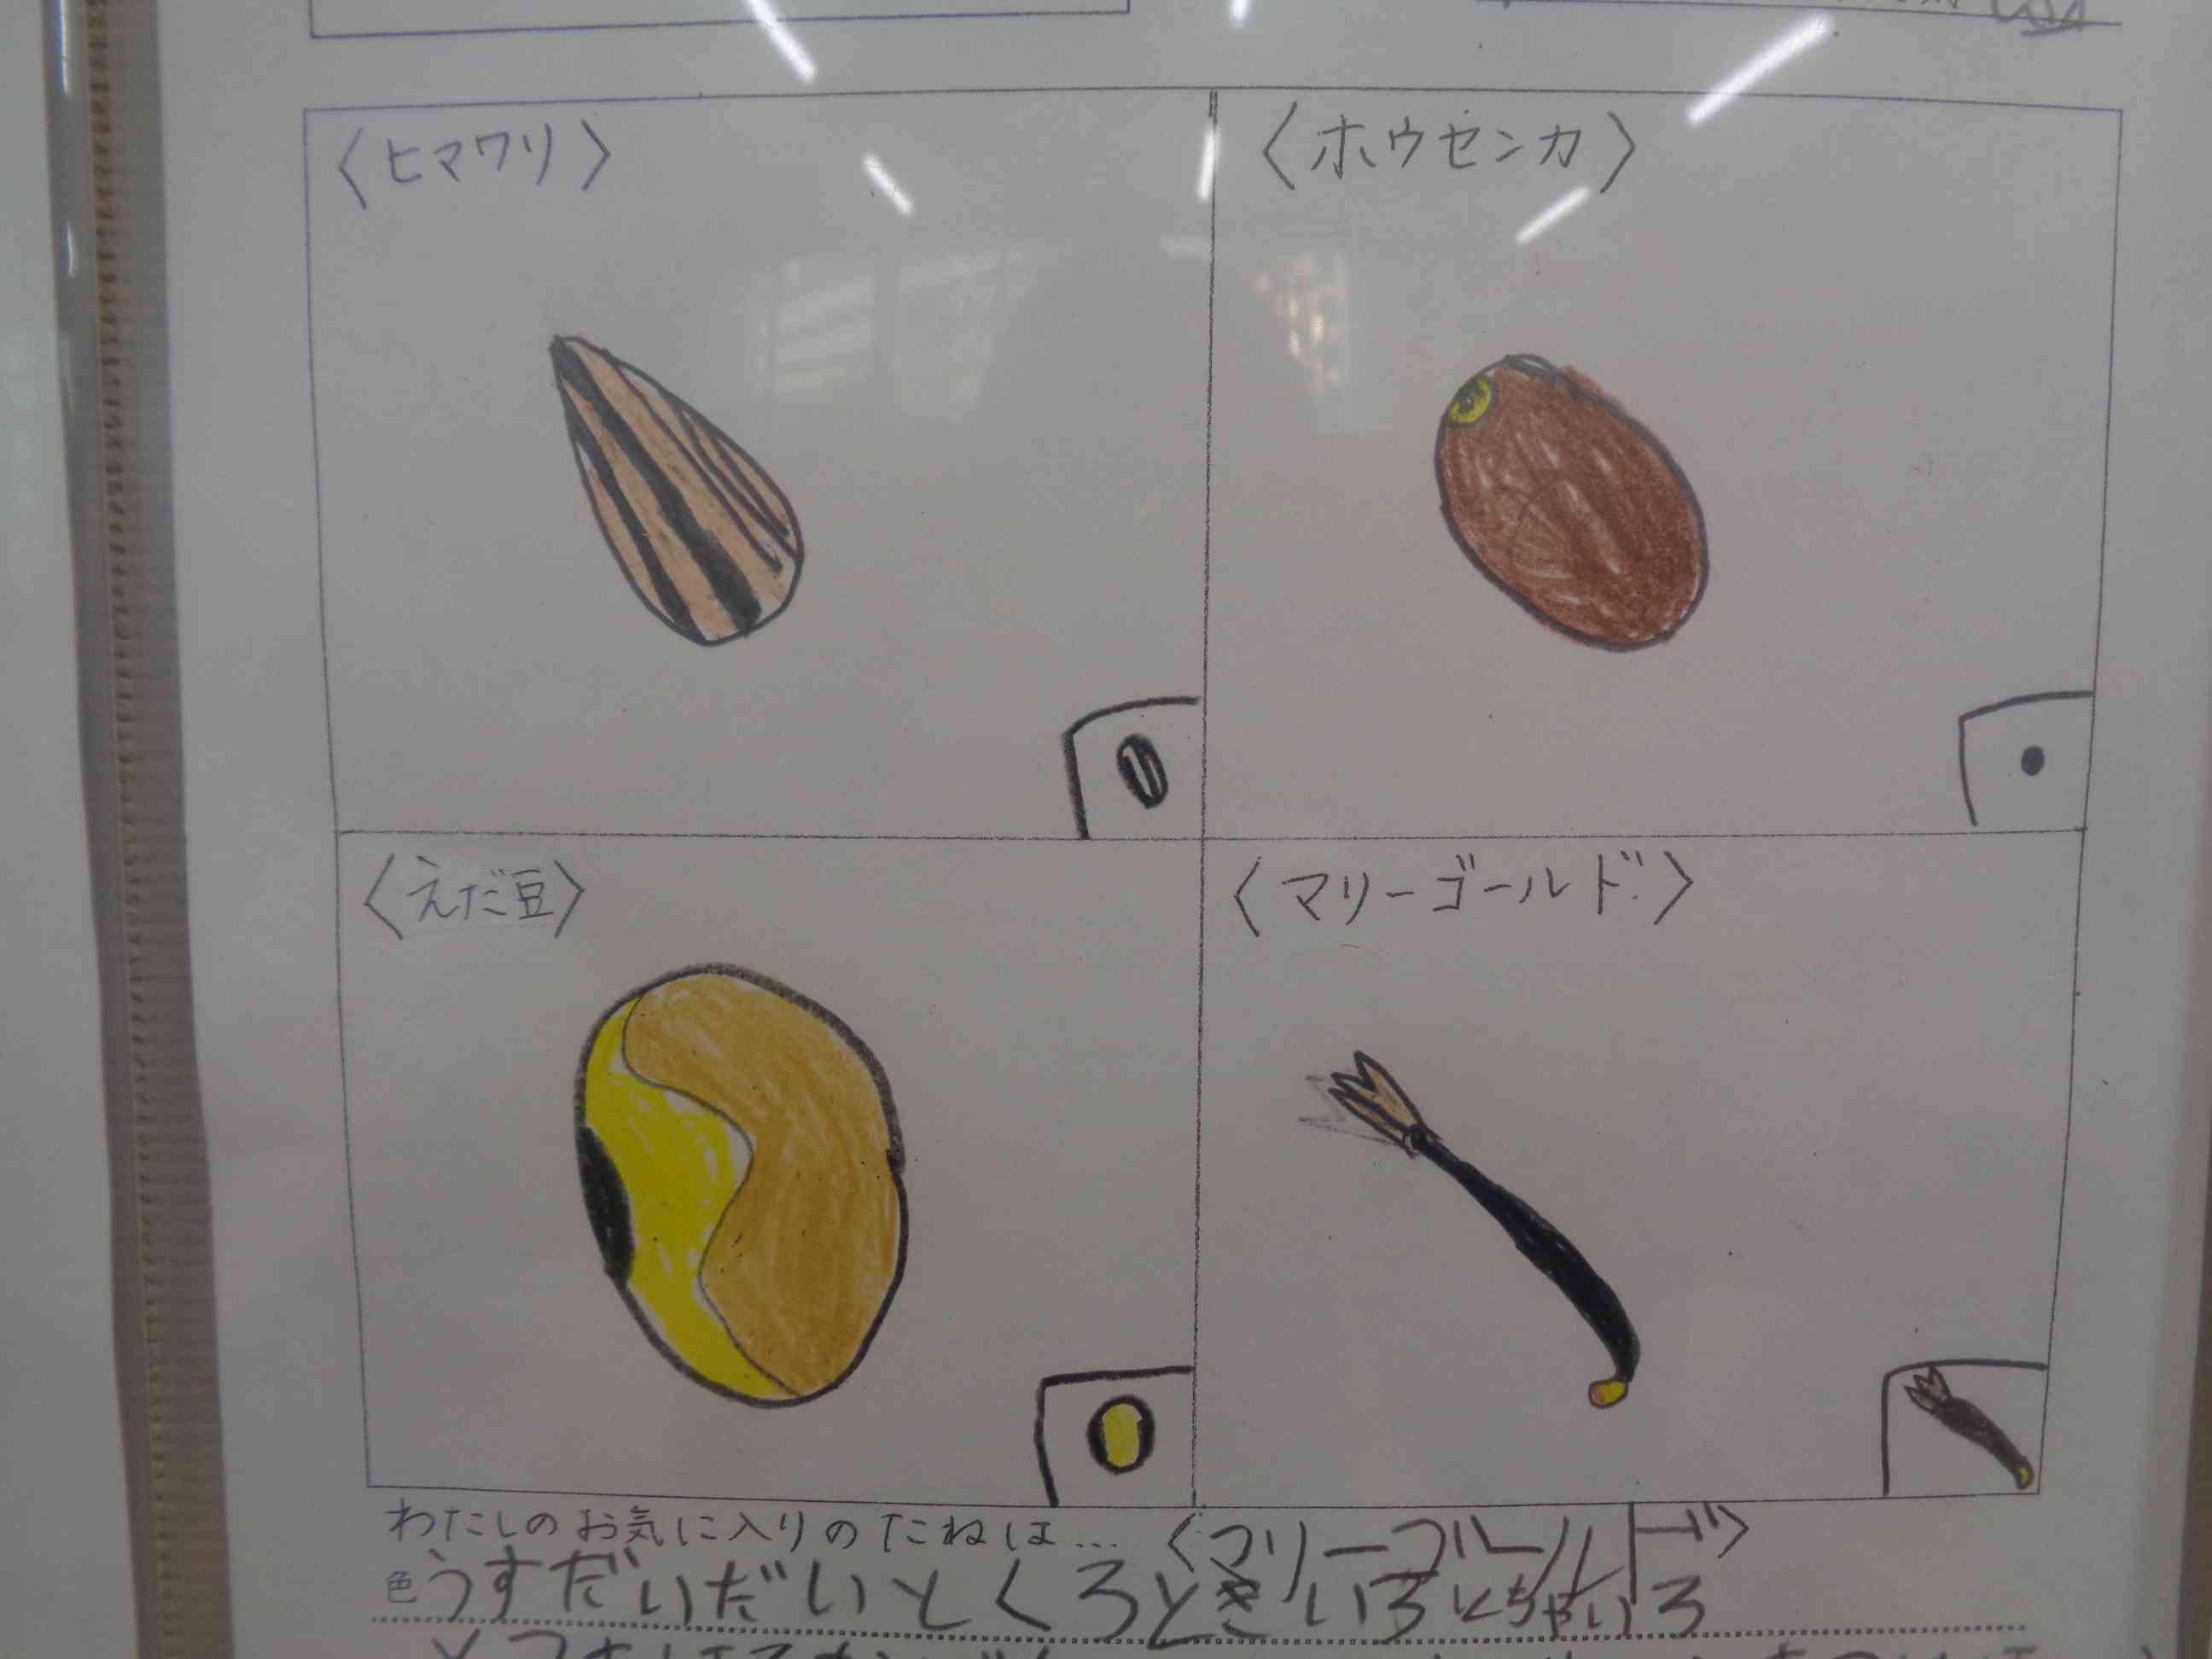 〈ヒマワリ〉
〈ホウセンカ〉
〈えだ豆〉
〈マリーゴールド〉
わたしのお気に入りのたねは… 〈マリーゴールド〉
色 うすだいだいとくろときいろとちゃいろ